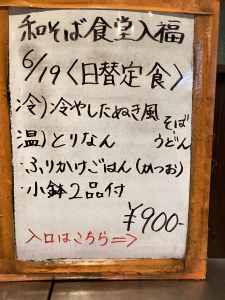 和そば食堂入福
6/19〈日替定食〉
冷)冷やしたぬき風 そば
温)とりなん うどん
・ふりかけごはん(かつお)
・小鉢2品付
¥900-
入口はこちら⇒